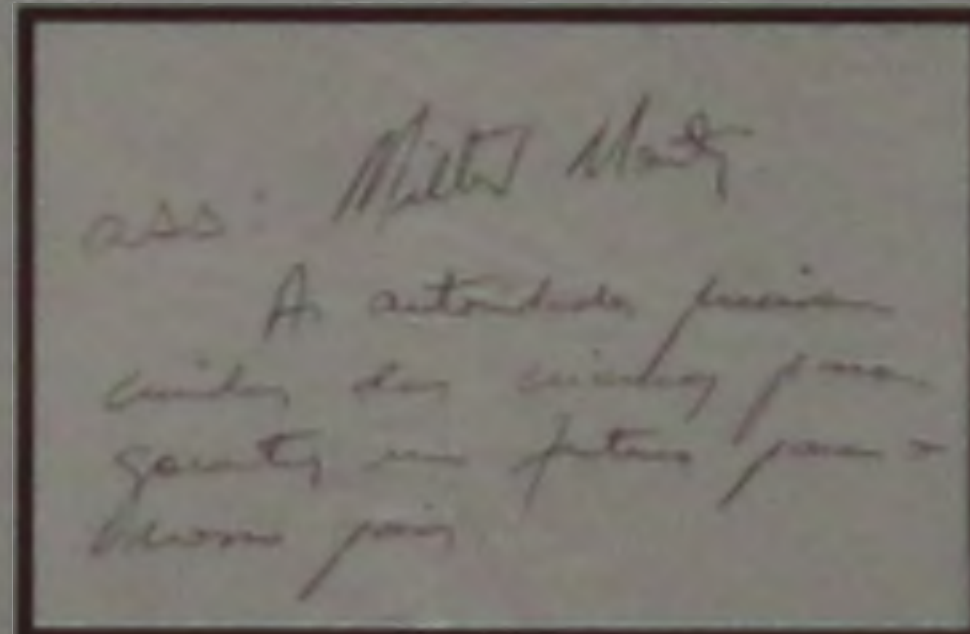 ass: Milton
As autoridades precisam
cuidar das crianças para
garantir um futuro para o
nosso país